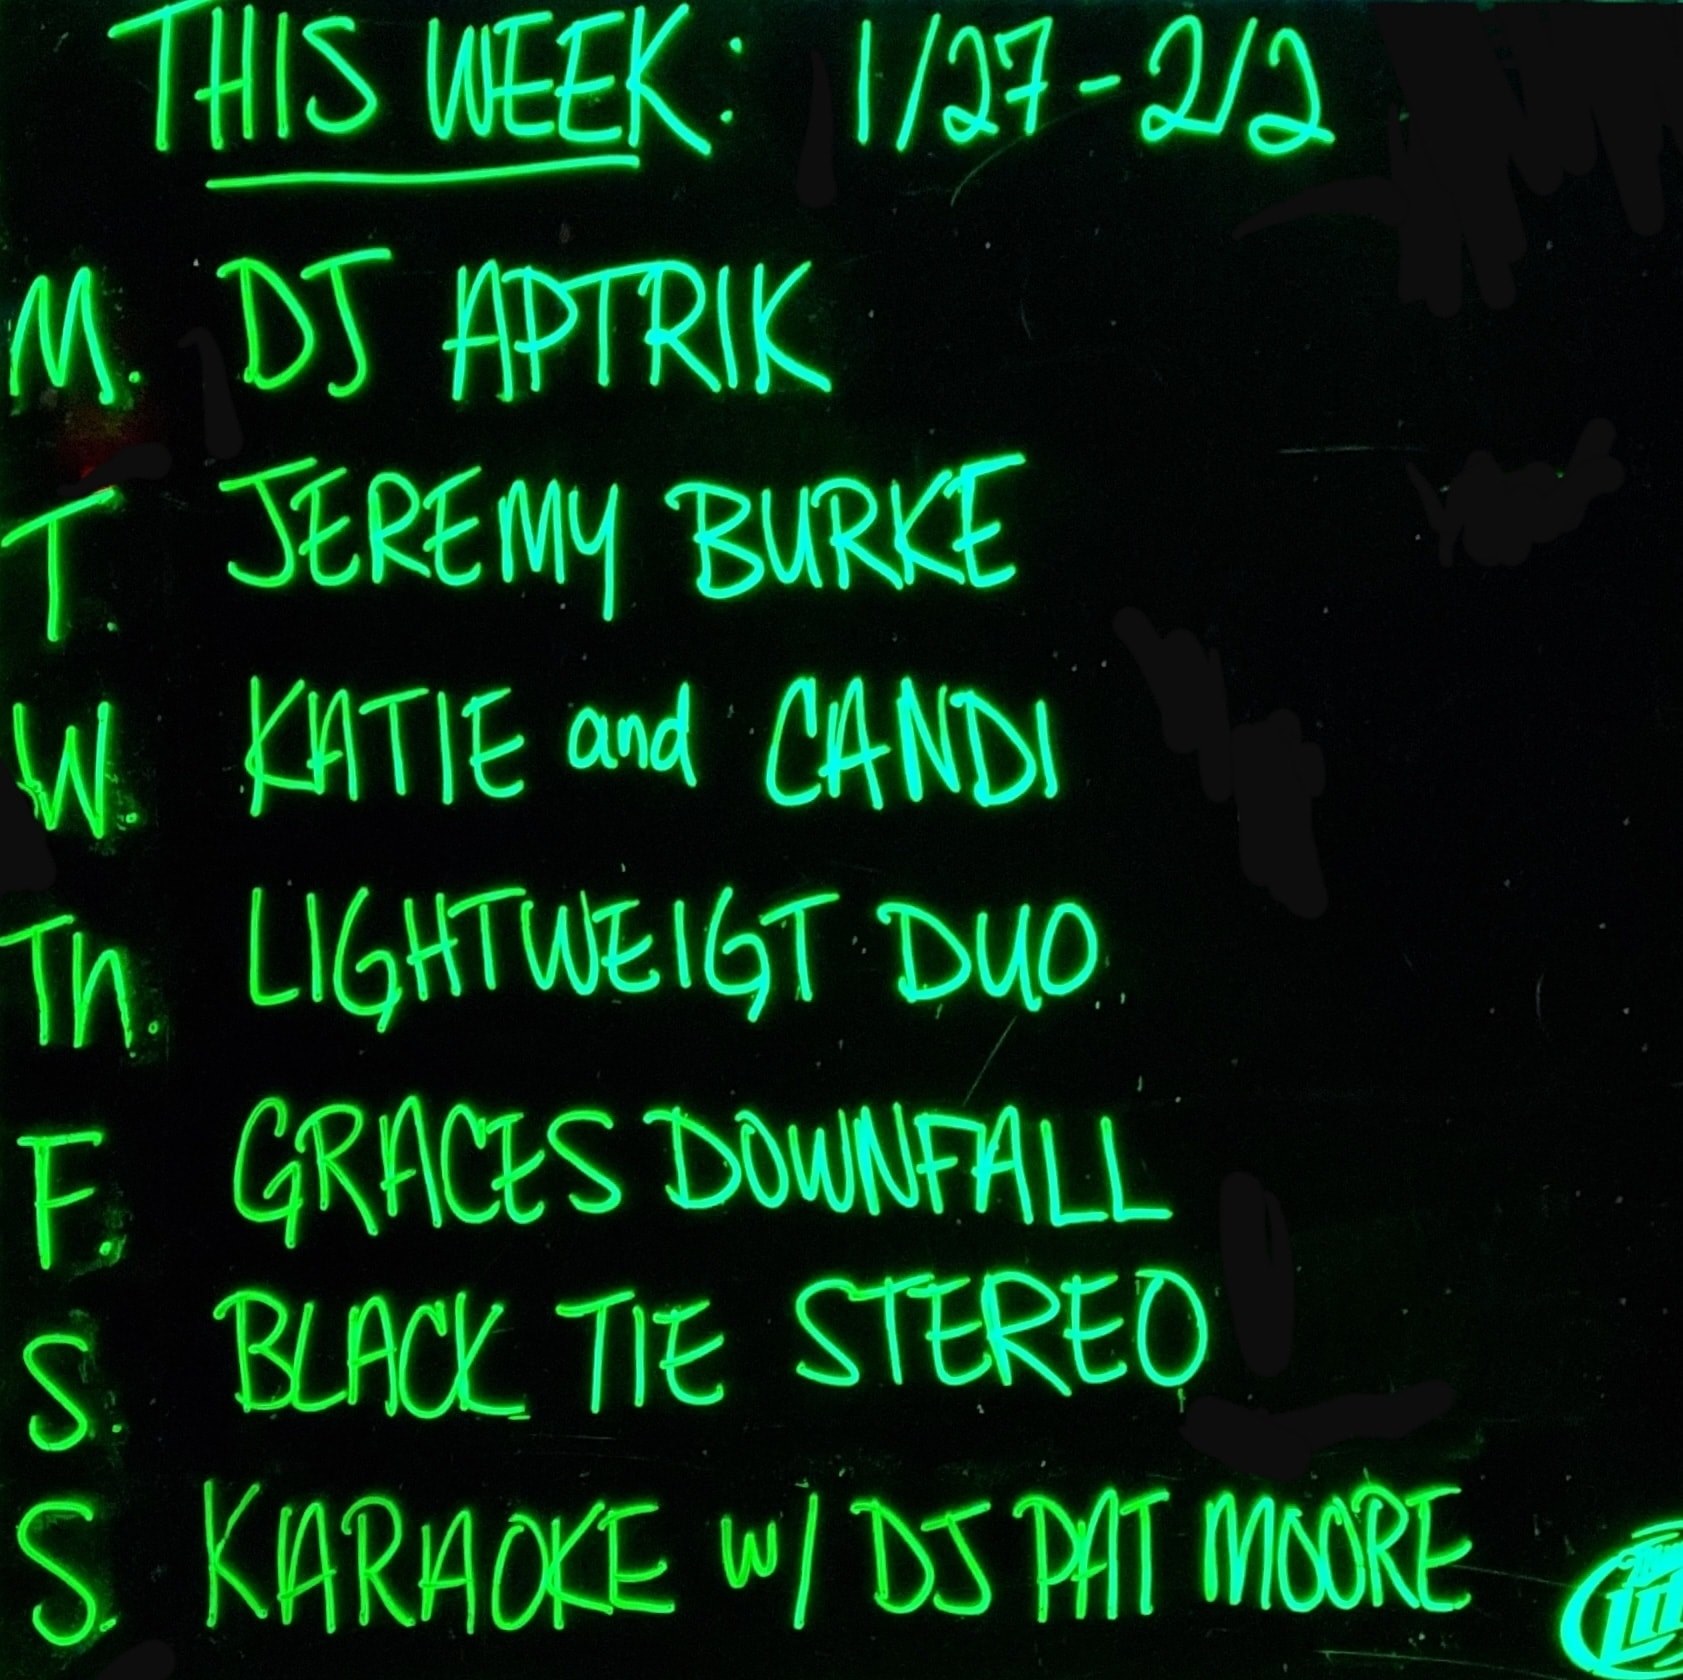 THIS WEEK: 1/27-2/2
M. DJ APTRIK
T. JEREMY BURKE
W. KATIE and CANDI
Th. LIGHTWEIGT DUO
F. GRACES DOWNFALL
S. BLACK TIE STEREO
S. KARAOKE w/ DJ PAT MOORE